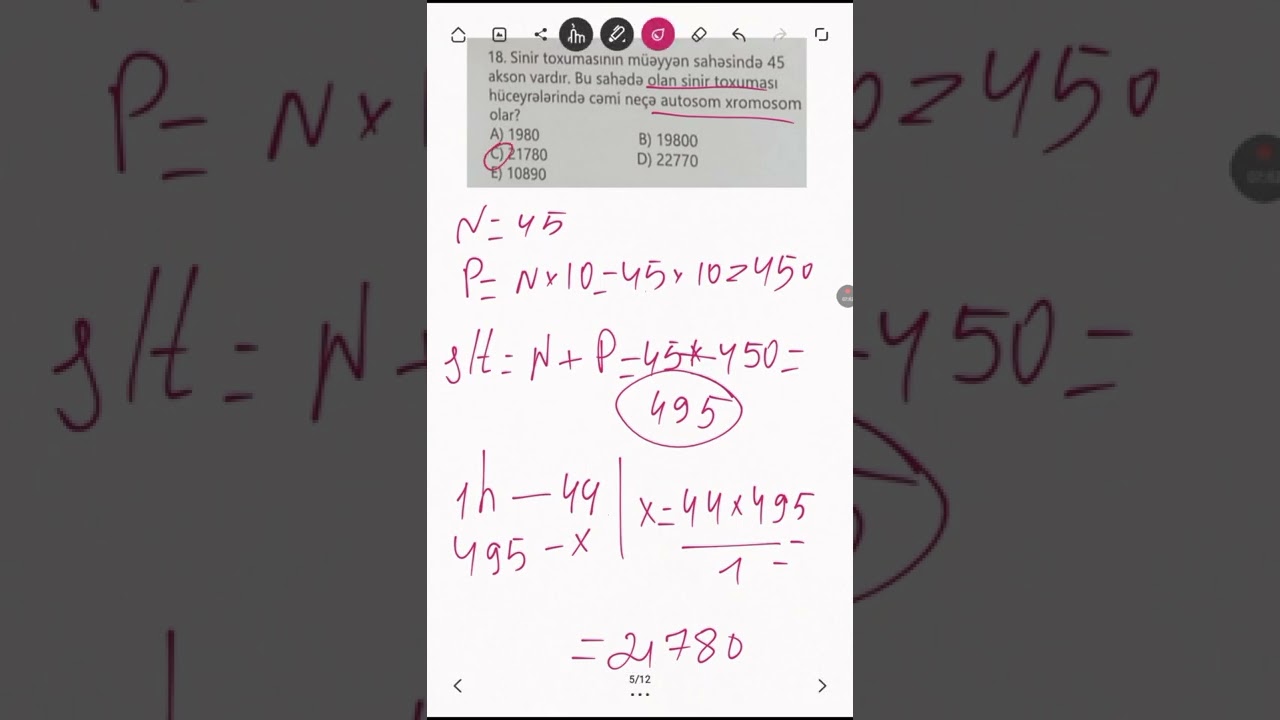 18. Sinir toxumasının müəyyən sahəsində 45
akson vardır. Bu sahədə olan sinir toxuması
hüceyrələrində cəmi neçə autosom xromosom
olar?
A) 1980
B) 19800
C) 21780
D) 22770
E) 10890
N = 45
P = N × 10 = 45 × 10 = 450
N + P = 45 + 450 =
495
1h — 44
495 — x
x = 44 × 495
1 =
= 21780
5/12